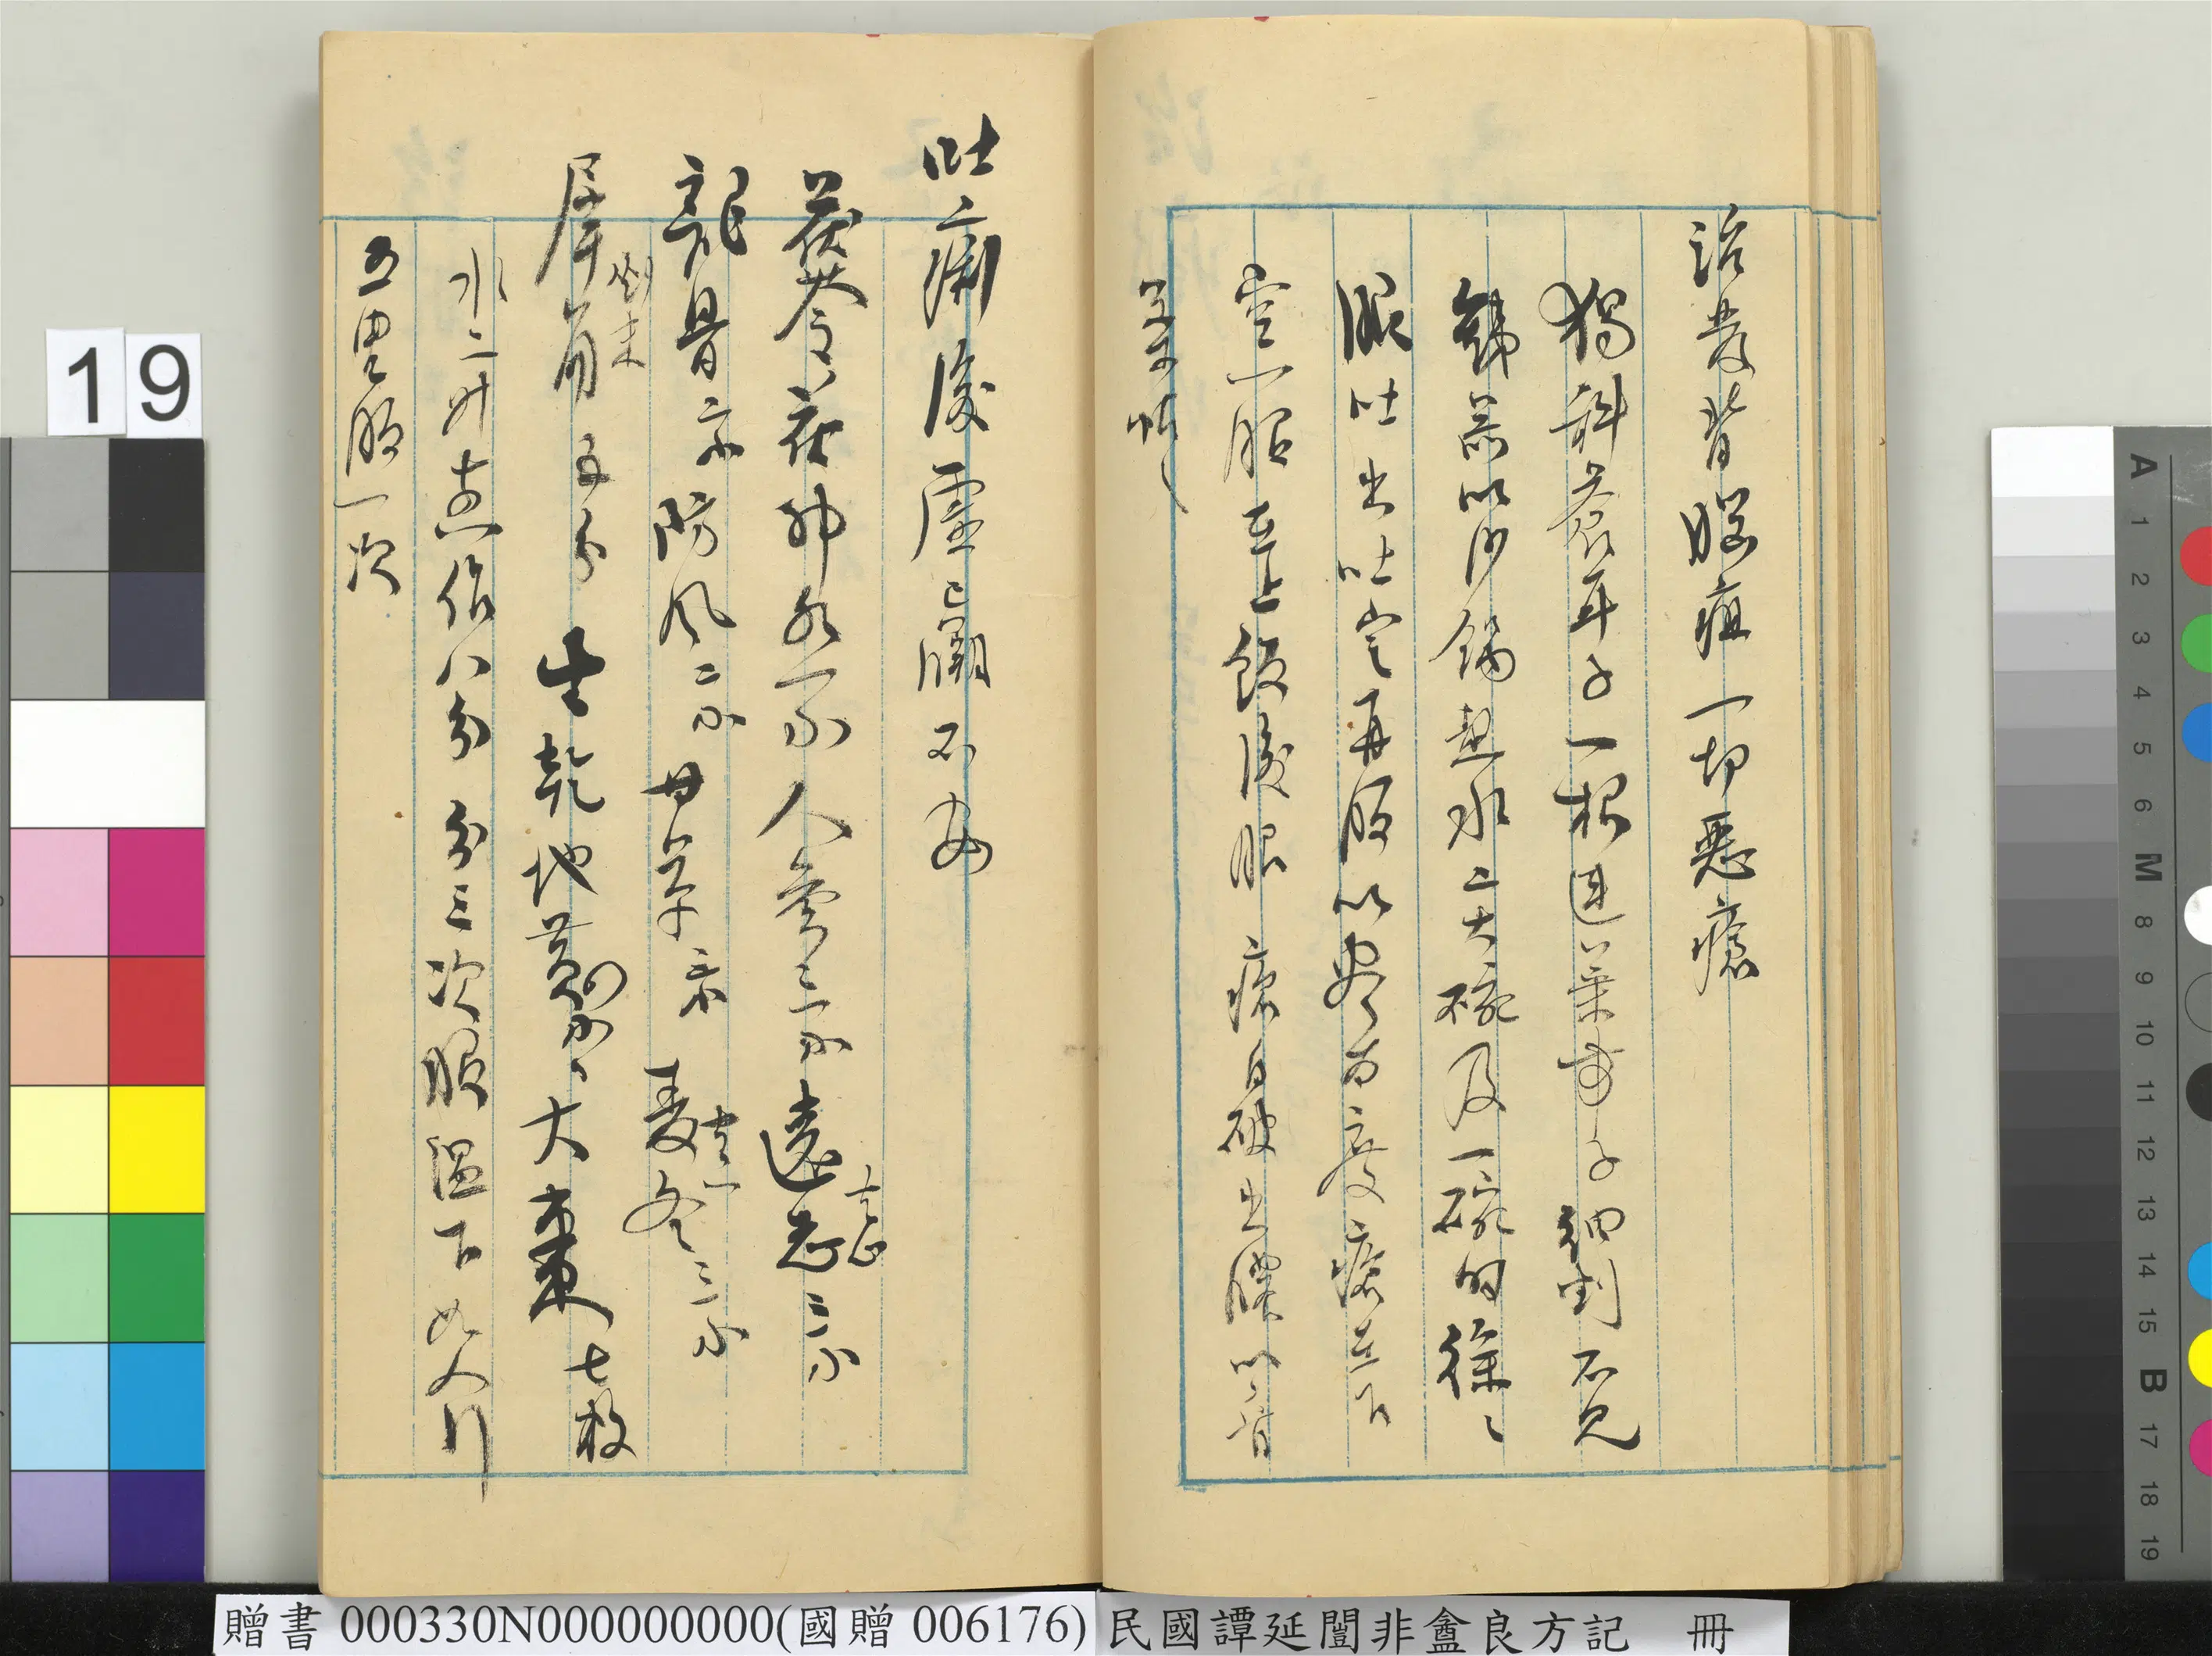 治發背腦疽一切惡瘡
獨科蒼耳子一根連葉帶子細剉不見
鐵器以沙鍋熬水二大碗及一碗的徐〻
服吐出吐定再服以盡為度瘡在下
空心服在上飯後服瘡自破出膿以膏
藥帖〻
吐痢後虛 不安
茯苓茯神各一 人參三 遠志三
去心
龍骨 防風二 甘草 麥冬三
去
炒末
犀角五分 生乾地黃 大棗七枚
水二升煮作八分 分三次服溫下如人行
五里服一次
19
贈書 000330N000000000(國贈 006176) 民國譚延闓非盦良方記 冊
A 1 2 3 4 5 6 M 8 9 10 11 12 13 14 15 B 17 18 19